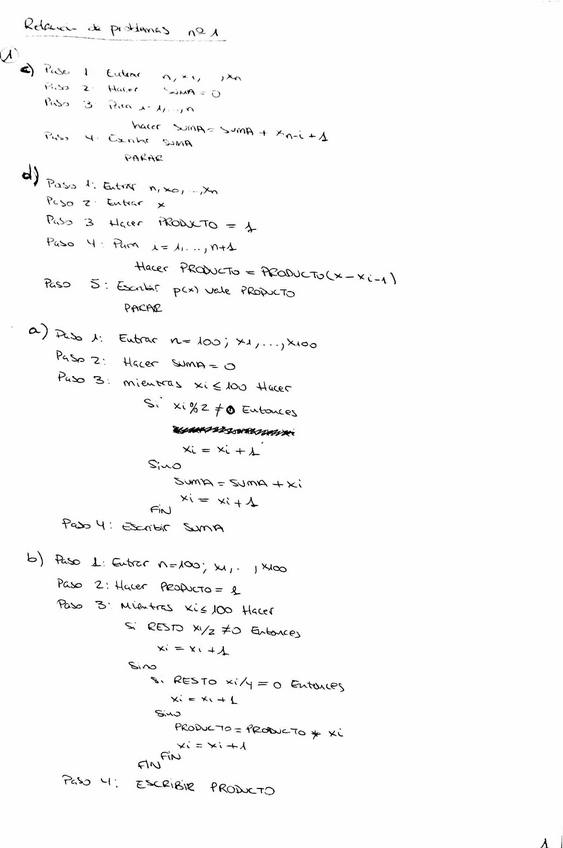 Relación de problemas nº 1
1
c) Paso 1 Entrar n, x1, , xn
Paso 2. Hacer SUMA = 0
Paso 3 Para i=1,..,n
hacer SUMA = SUMA + xn-i+1
Paso 4. Escribir SUMA
PARAR
d) Paso 1: Entrar n, x0, .., xn
Paso 2. Entrar x
Paso 3 Hacer PRODUCTO = 1
Paso 4: Para i = 1, ..., n+1
Hacer PRODUCTO = PRODUCTO(x-xi-1)
Paso 5: Escribir p(x) vale PRODUCTO
PARAR
a) Paso 1: Entrar n = 100; x1, ..., x100
Paso 2: Hacer SUMA = 0
Paso 3: mientras xi ≤ 100 Hacer
Si xi%2 ≠ 0 Entonces
xi = xi + 1
Sino
SUMA = SUMA + xi
xi = xi + 1
FIN
Paso 4: Escribir SUMA
b) Paso 1: Entrar n=100; x1, .. , x100
Paso 2: Hacer PRODUCTO = 1
Paso 3: Mientras xi ≤ 100 Hacer
Si RESTO xi/2 ≠ 0 Entonces
xi = xi + 1
Sino
Si RESTO xi/4 = 0 Entonces
xi = xi + 1
Sino
PRODUCTO = PRODUCTO * xi
xi = xi + 1
FIN
FIN
Paso 4: ESCRIBIR PRODUCTO
1